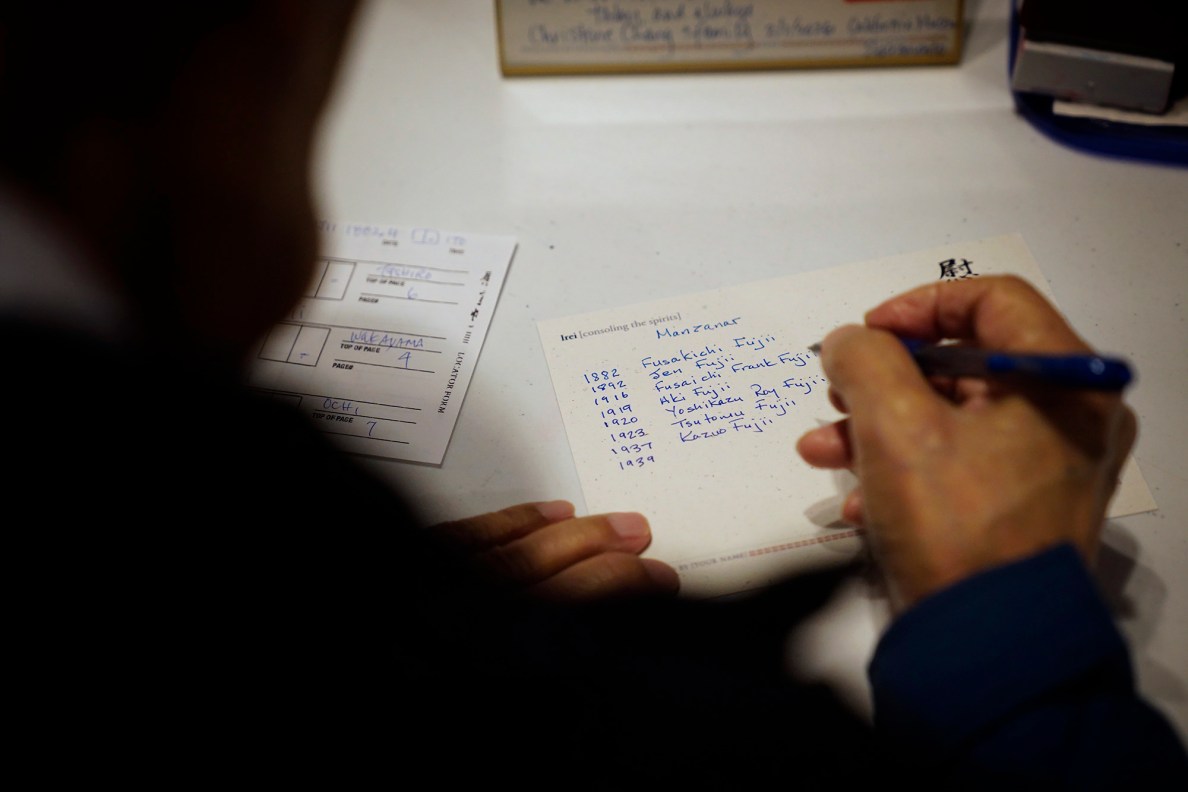 Today and always
Christine Chang California
1882
TOP OF PAGE
PAGE#
6
WAKAYAMA
TOP OF PAGE
4
PAGE#
OCHI
TOP OF PAGE
PAGE#
7
LOCATOR FORM
慰
Irei [consoling the spirits]
Manzanar
1882 Fusakichi Fujii
1892 Sen Fujii
1916 Fusaichi Frank Fujii
1919 Aki Fujii
1920 Yoshikazu Roy Fujii
1923 Tsutomu Fujii
1937 Kazuo Fujii
1939
[YOUR NAME]